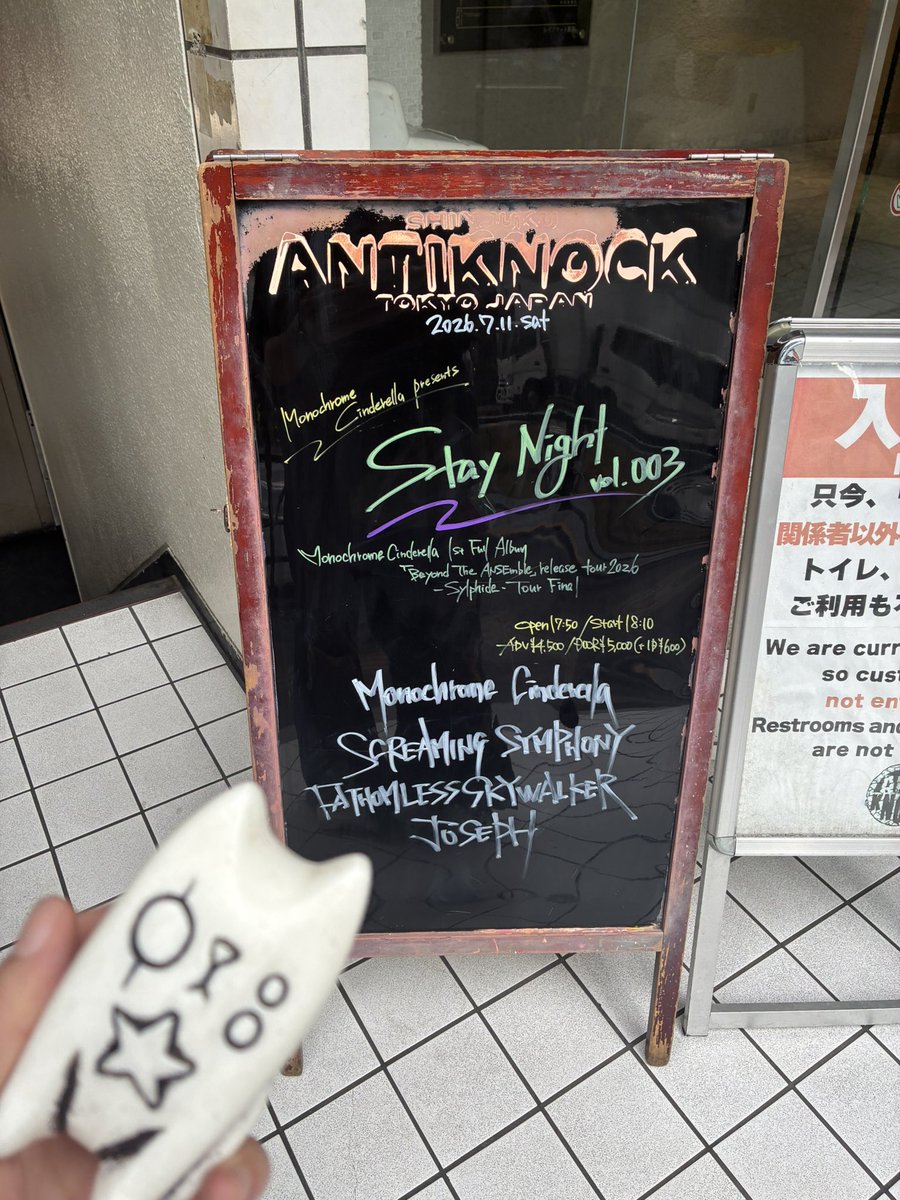 SHINJUKU
ANTIKNOCK
TOKYO JAPAN
2026.7.11.sat
Monochrome
Cinderella presents
Stay Night
vol.003
Monochrome Cinderella 1st Full Album
「Beyond The ANSEmble」release tour 2026
-Sylphide- Tour Final
open17:50/Start18:10
ADV¥4.500/DOOR¥5,000(+1D¥600)
Monochrome Cinderella
SCREAMING SYMPHONY
FATHOMLESS SKYWALKER
JOSEPH
入
只今、
関係者以外
トイレ、
ご利用も
We are curr
so cust
not en
Restrooms and
are not